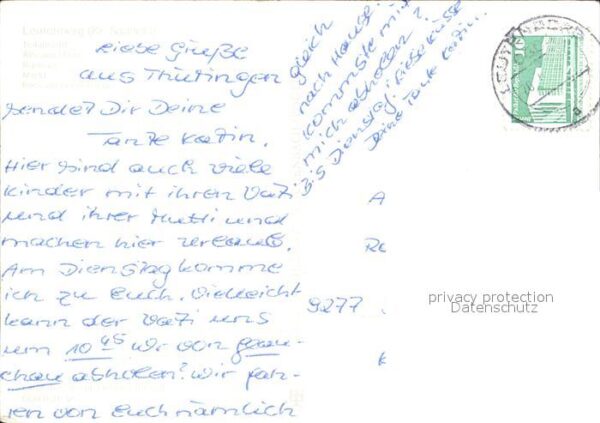 Liebe Grüße
aus Thüringen
sendet Dir Deine
Tante Katin.
Hier sind auch viele
Kinder mit ihren Vati
und ihrer Mutti und
machen hier Urlaub.
Am Dienstag komme
ich zu Euch. Vielleicht
kann der Vati uns
um 10 45 Uhr von
abholen? Wir fah-
ren von Euch nämlich
gleich
nach Hause.
Kommste mit
mich abholen?
Bis Dienstag! Liebe Küsse
Deine Tante Katin.
A
9277
privacy protection
Datenschutz
10